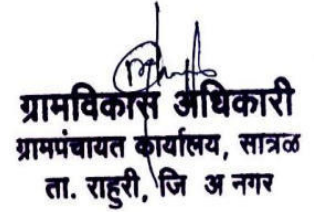 ग्रामविकास अधिकारी
ग्रामपंचायत कार्यालय, सात्रळ
ता. राहुरी, जि अ नगर